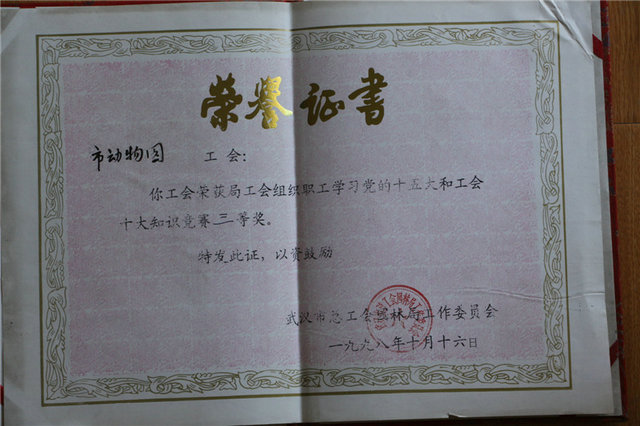 荣誉证书
市动物园 工会:
你工会荣获局工会组织职工学习党的十五大和工会
十大知识竞赛三等奖。
特发此证，以资鼓励
武汉市总工会园林局工作委员会
一九九八年十月十六日